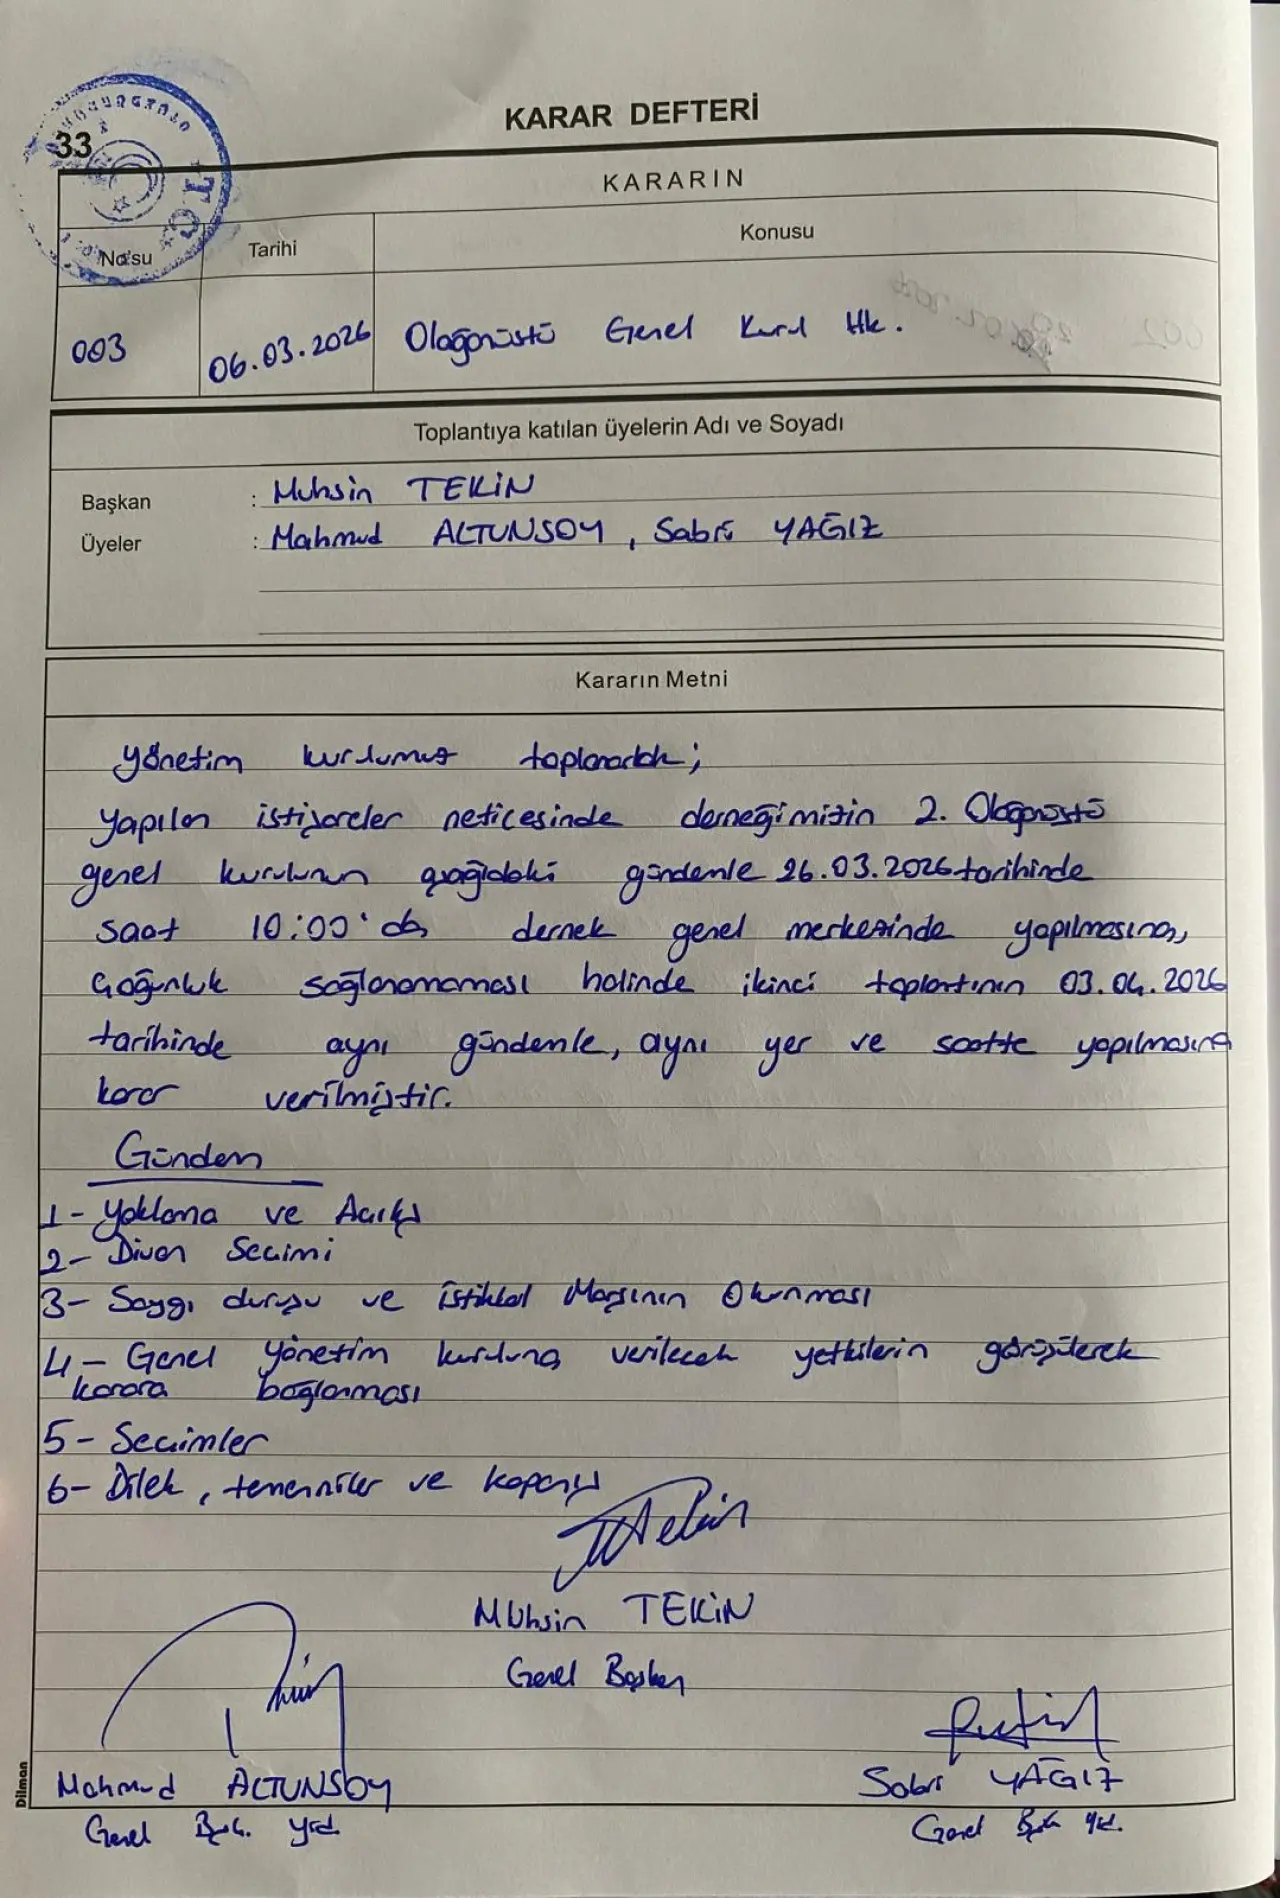 KARAR DEFTERİ
33
T.C.
KARARIN
No'su Tarihi Konusu
003 06.03.2026 Olağanüstü Genel Kurul Hk.
Toplantıya katılan üyelerin Adı ve Soyadı
Başkan : Muhsin TEKİN
Üyeler : Mahmud ALTUNSOY, Sabri YAĞIZ
Kararın Metni
Yönetim kurulumuz toplanarak;
Yapılan istişareler neticesinde derneğimizin 2. Olağanüstü
genel kurulunun aşağıdaki gündemle 26.03.2026 tarihinde
saat 10:00'da dernek genel merkezinde yapılmasına,
Çoğunluk sağlanamaması halinde ikinci toplantının 03.04.2026
tarihinde aynı gündemle, aynı yer ve saatte yapılmasına
karar verilmiştir.
Gündem
1- Yoklama ve Açılış
2- Divan Seçimi
3- Saygı duruşu ve İstiklal Marşının Okunması
4- Genel Yönetim kuruluna verilecek yetkilerin görüşülerek
karara bağlanması
5- Seçimler
6- Dilek, temenniler ve kapanış
Muhsin TEKİN
Genel Başkan
Mahmud ALTUNSOY
Genel Başk. Yrd.
Sabri YAĞIZ
Genel Başk. Yrd.
Dilman